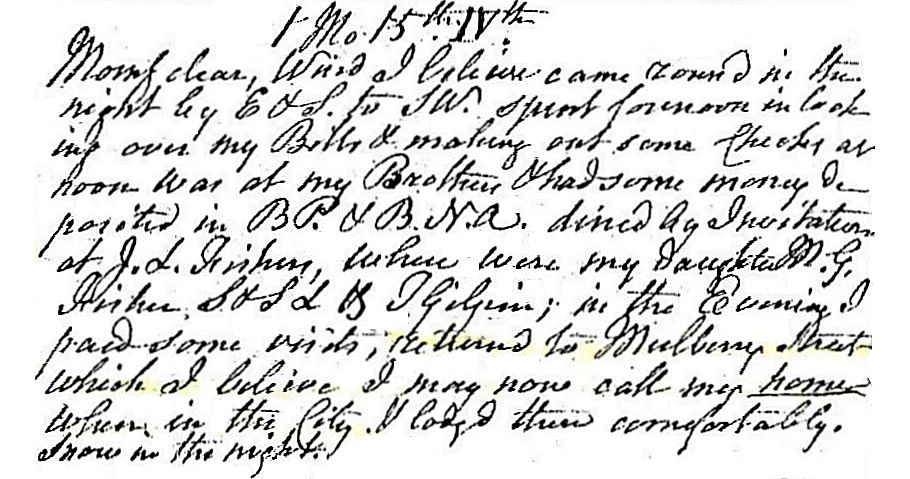 1 Mo 15th. IVth
Morng clear, Wind I believe came round in the
night by E & S. to SW. spent forenoon in look
ing over my Bills & making out some Checks at
noon was at my Brothers & had some money de
posited in B.P. & B.N.A. dined by Invitation
at J. L. Fishers, where were my daughter M. G.
Fisher, S & S L & J Gilpin; in the Evening I
paid some visits, returned to Mulberry Street
which I believe I may now call my home
when in the City. I lodg'd there comfortably.
Snow in the night.